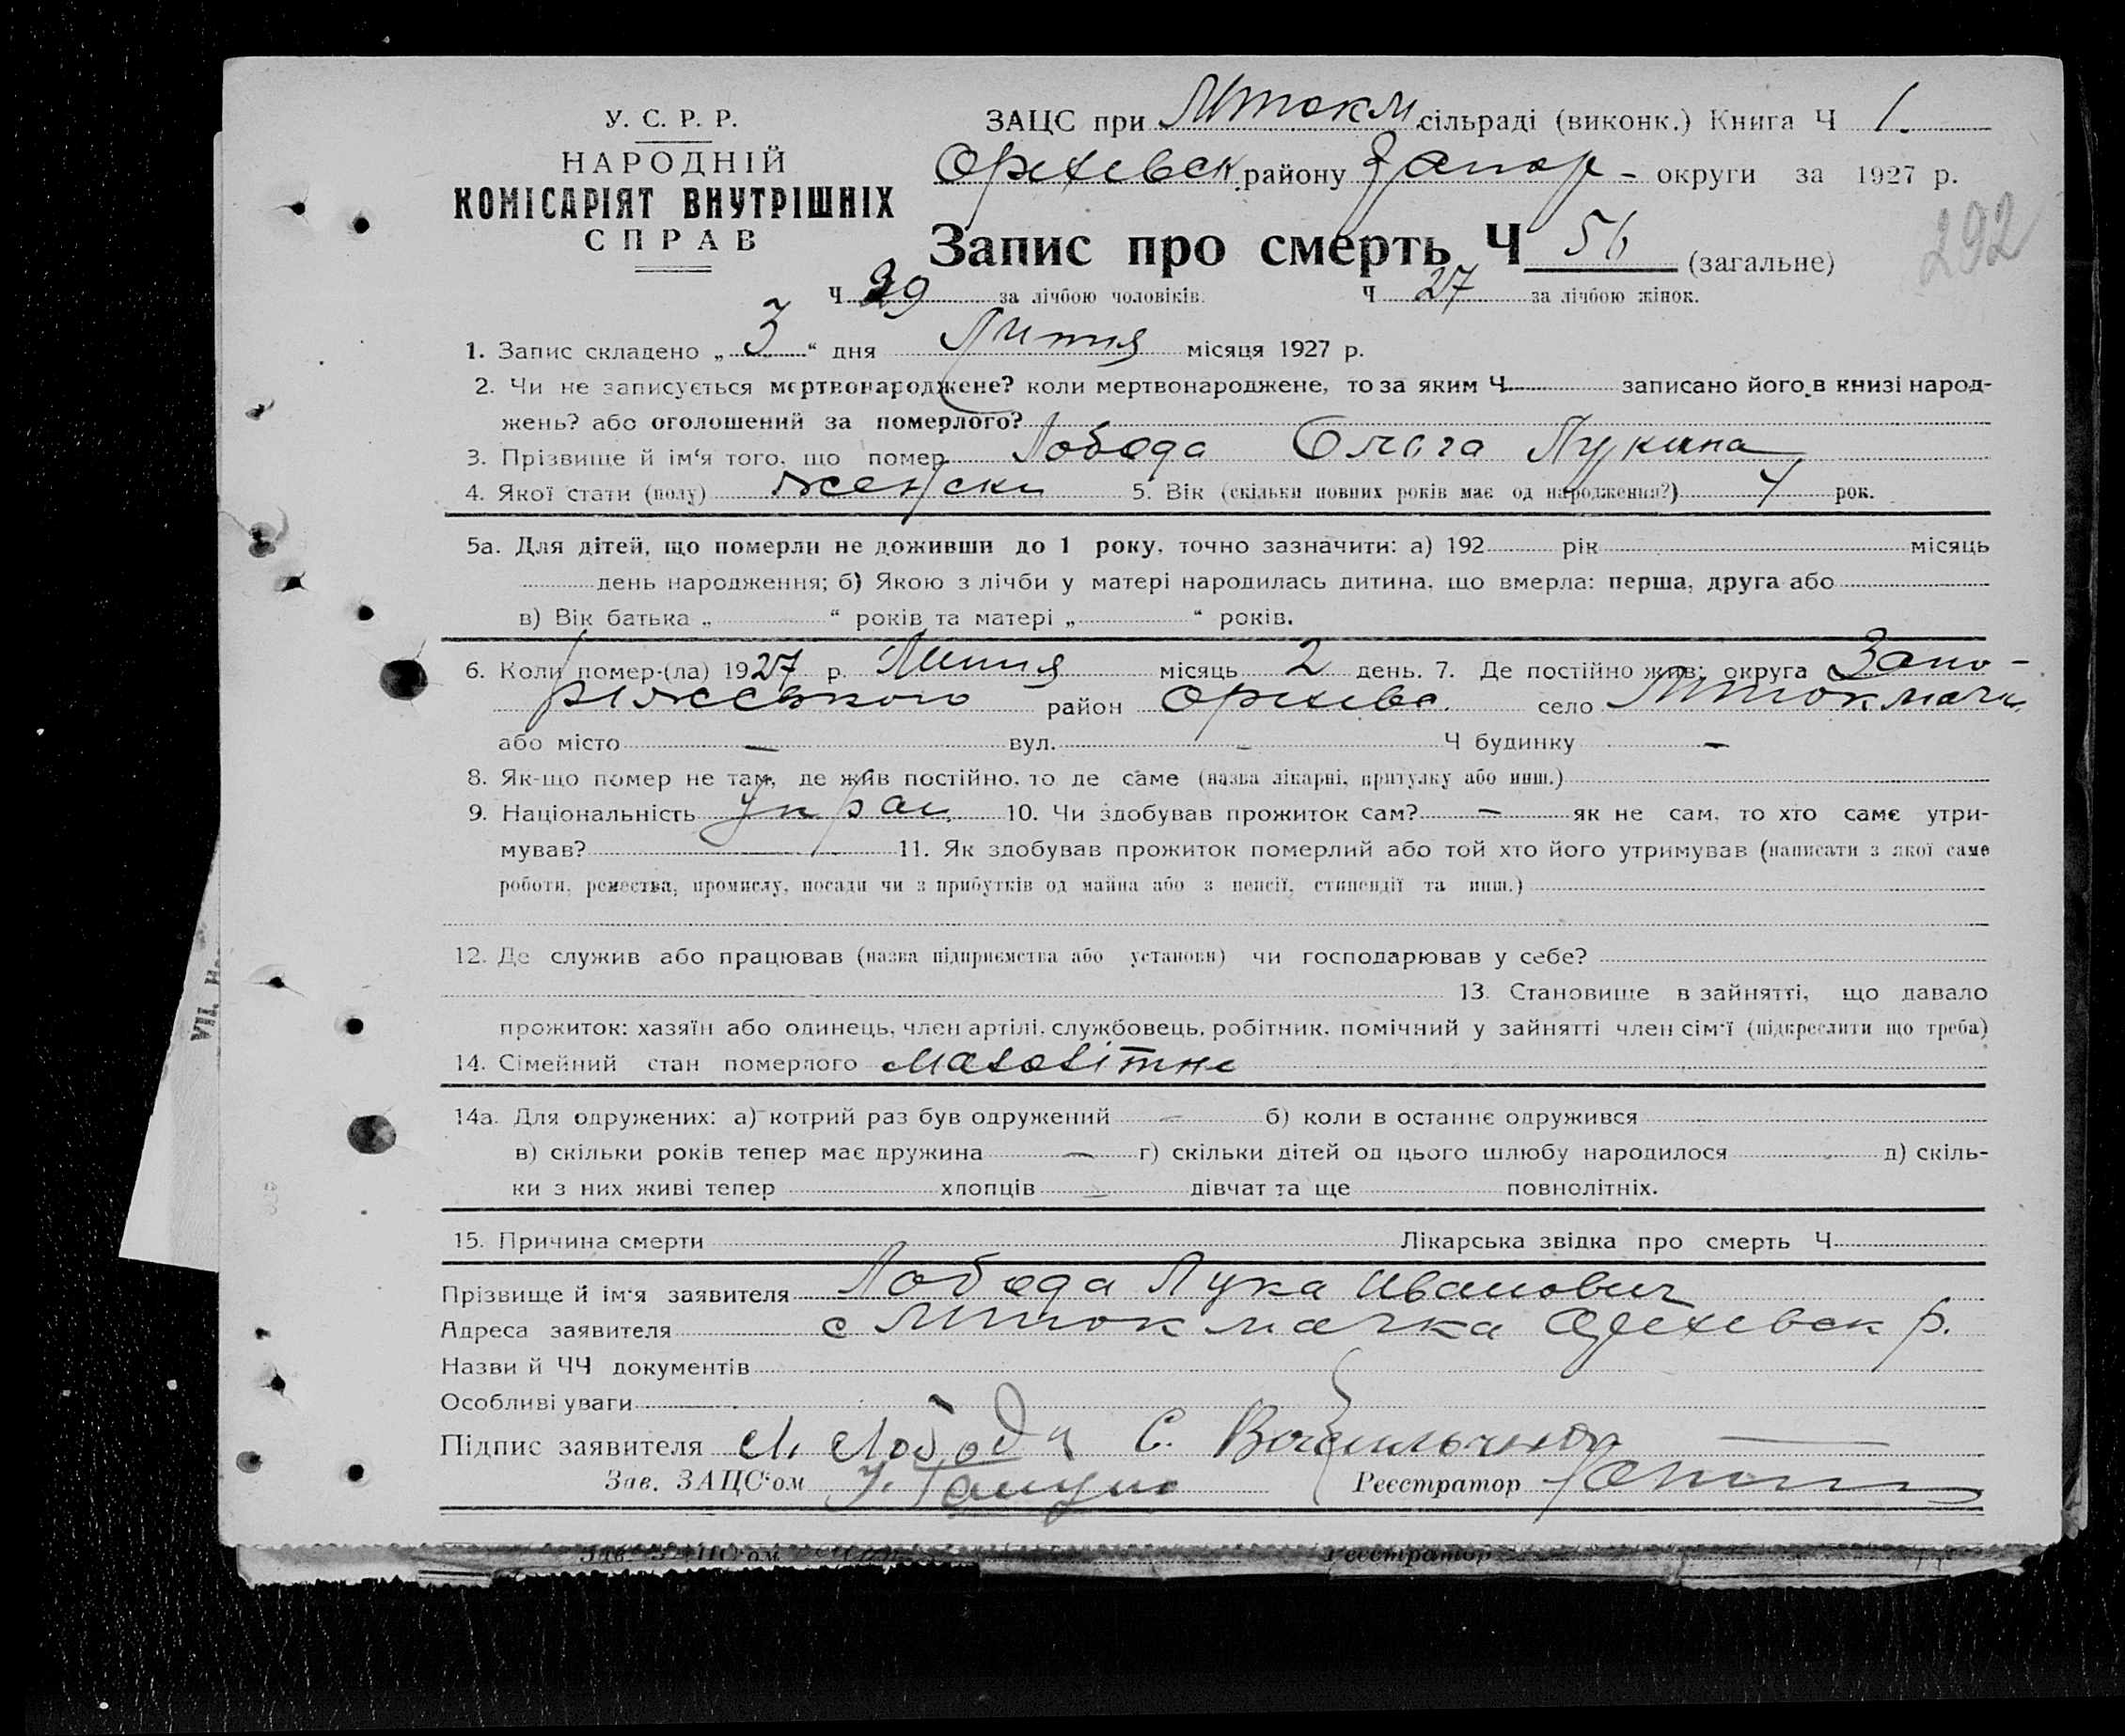 У. С. Р. Р.
НАРОДНІЙ
КОМІСАРІЯТ ВНУТРІШНІХ
СПРАВ
ЗАЦС при Мтокм. сільраді (виконк.) Книга Ч 1.
Орехевск. району Запор- округи за 1927 р.
292
Запис про смерть Ч 56 (загальне)
Ч 29 за лічбою чоловіків. Ч 27 за лічбою жінок.
1. Запис складено „ 3 “ дня Липня місяця 1927 р.
2. Чи не записується мертвонароджене? коли мертвонароджене, то за яким Ч записано його в книзі народ-
жень? або оголошений за померлого?
3. Прізвище й ім'я того, що помер Лобода Ольга Лукина
4. Якої стати (полу) женски 5. Вік (скільки повних років має од народження?) рок.
5а. Для дітей, що померли не доживши до 1 року, точно зазначити: а) 192 рік місяць
день народження; б) Якою з лічби у матері народилась дитина, що вмерла: перша, друга або
в) Вік батька „ “ років та матері „ “ років.
6. Коли помер-(ла) 1927 р. Липня місяць 2 день. 7. Де постійно жив: округа Запо-
ріжського район Орехева. село Мтокмачк
або місто — вул. - Ч будинку —
8. Як-що помер не там, де жив постійно, то де саме (назва лікарні, притулку або инш.)
9. Національність Украи. 10. Чи здобував прожиток сам? — як не сам, то хто саме утри-
мував? 11. Як здобував прожиток померлий або той хто його утримував (написати з якої саме
роботи, ремества, промислу, посади чи з прибутків од майна або з пенсії, стипендії та инш.)
12. Де служив або працював (назва підприємства або установи) чи господарював у себе?
13. Становище в зайнятті, що давало
прожиток: хазяїн або одинець, член артілі, службовець, робітник, помічний у зайнятті член сім'ї (підкреслити що треба)
14. Сімейний стан померлого малолітне
14а. Для одружених: а) котрий раз був одружений — б) коли в останнє одружився
в) скільки років тепер має дружина — г) скільки дітей од цього шлюбу народилося - д) скіль-
ки з них живі тепер хлопців — дівчат та ще повнолітніх.
15. Причина смерти Лікарська звідка про смерть Ч
Прізвище й ім'я заявителя Лобода Лука Иванович
Адреса заявителя с Мтокмачка Орехевск р.
Назви й ЧЧ документів
Особливі уваги
Підпис заявителя Л. Лобода С.
Зав. ЗАЦС'ом Реєстратор
Зав. ЗАЦС'ом Реєстратор